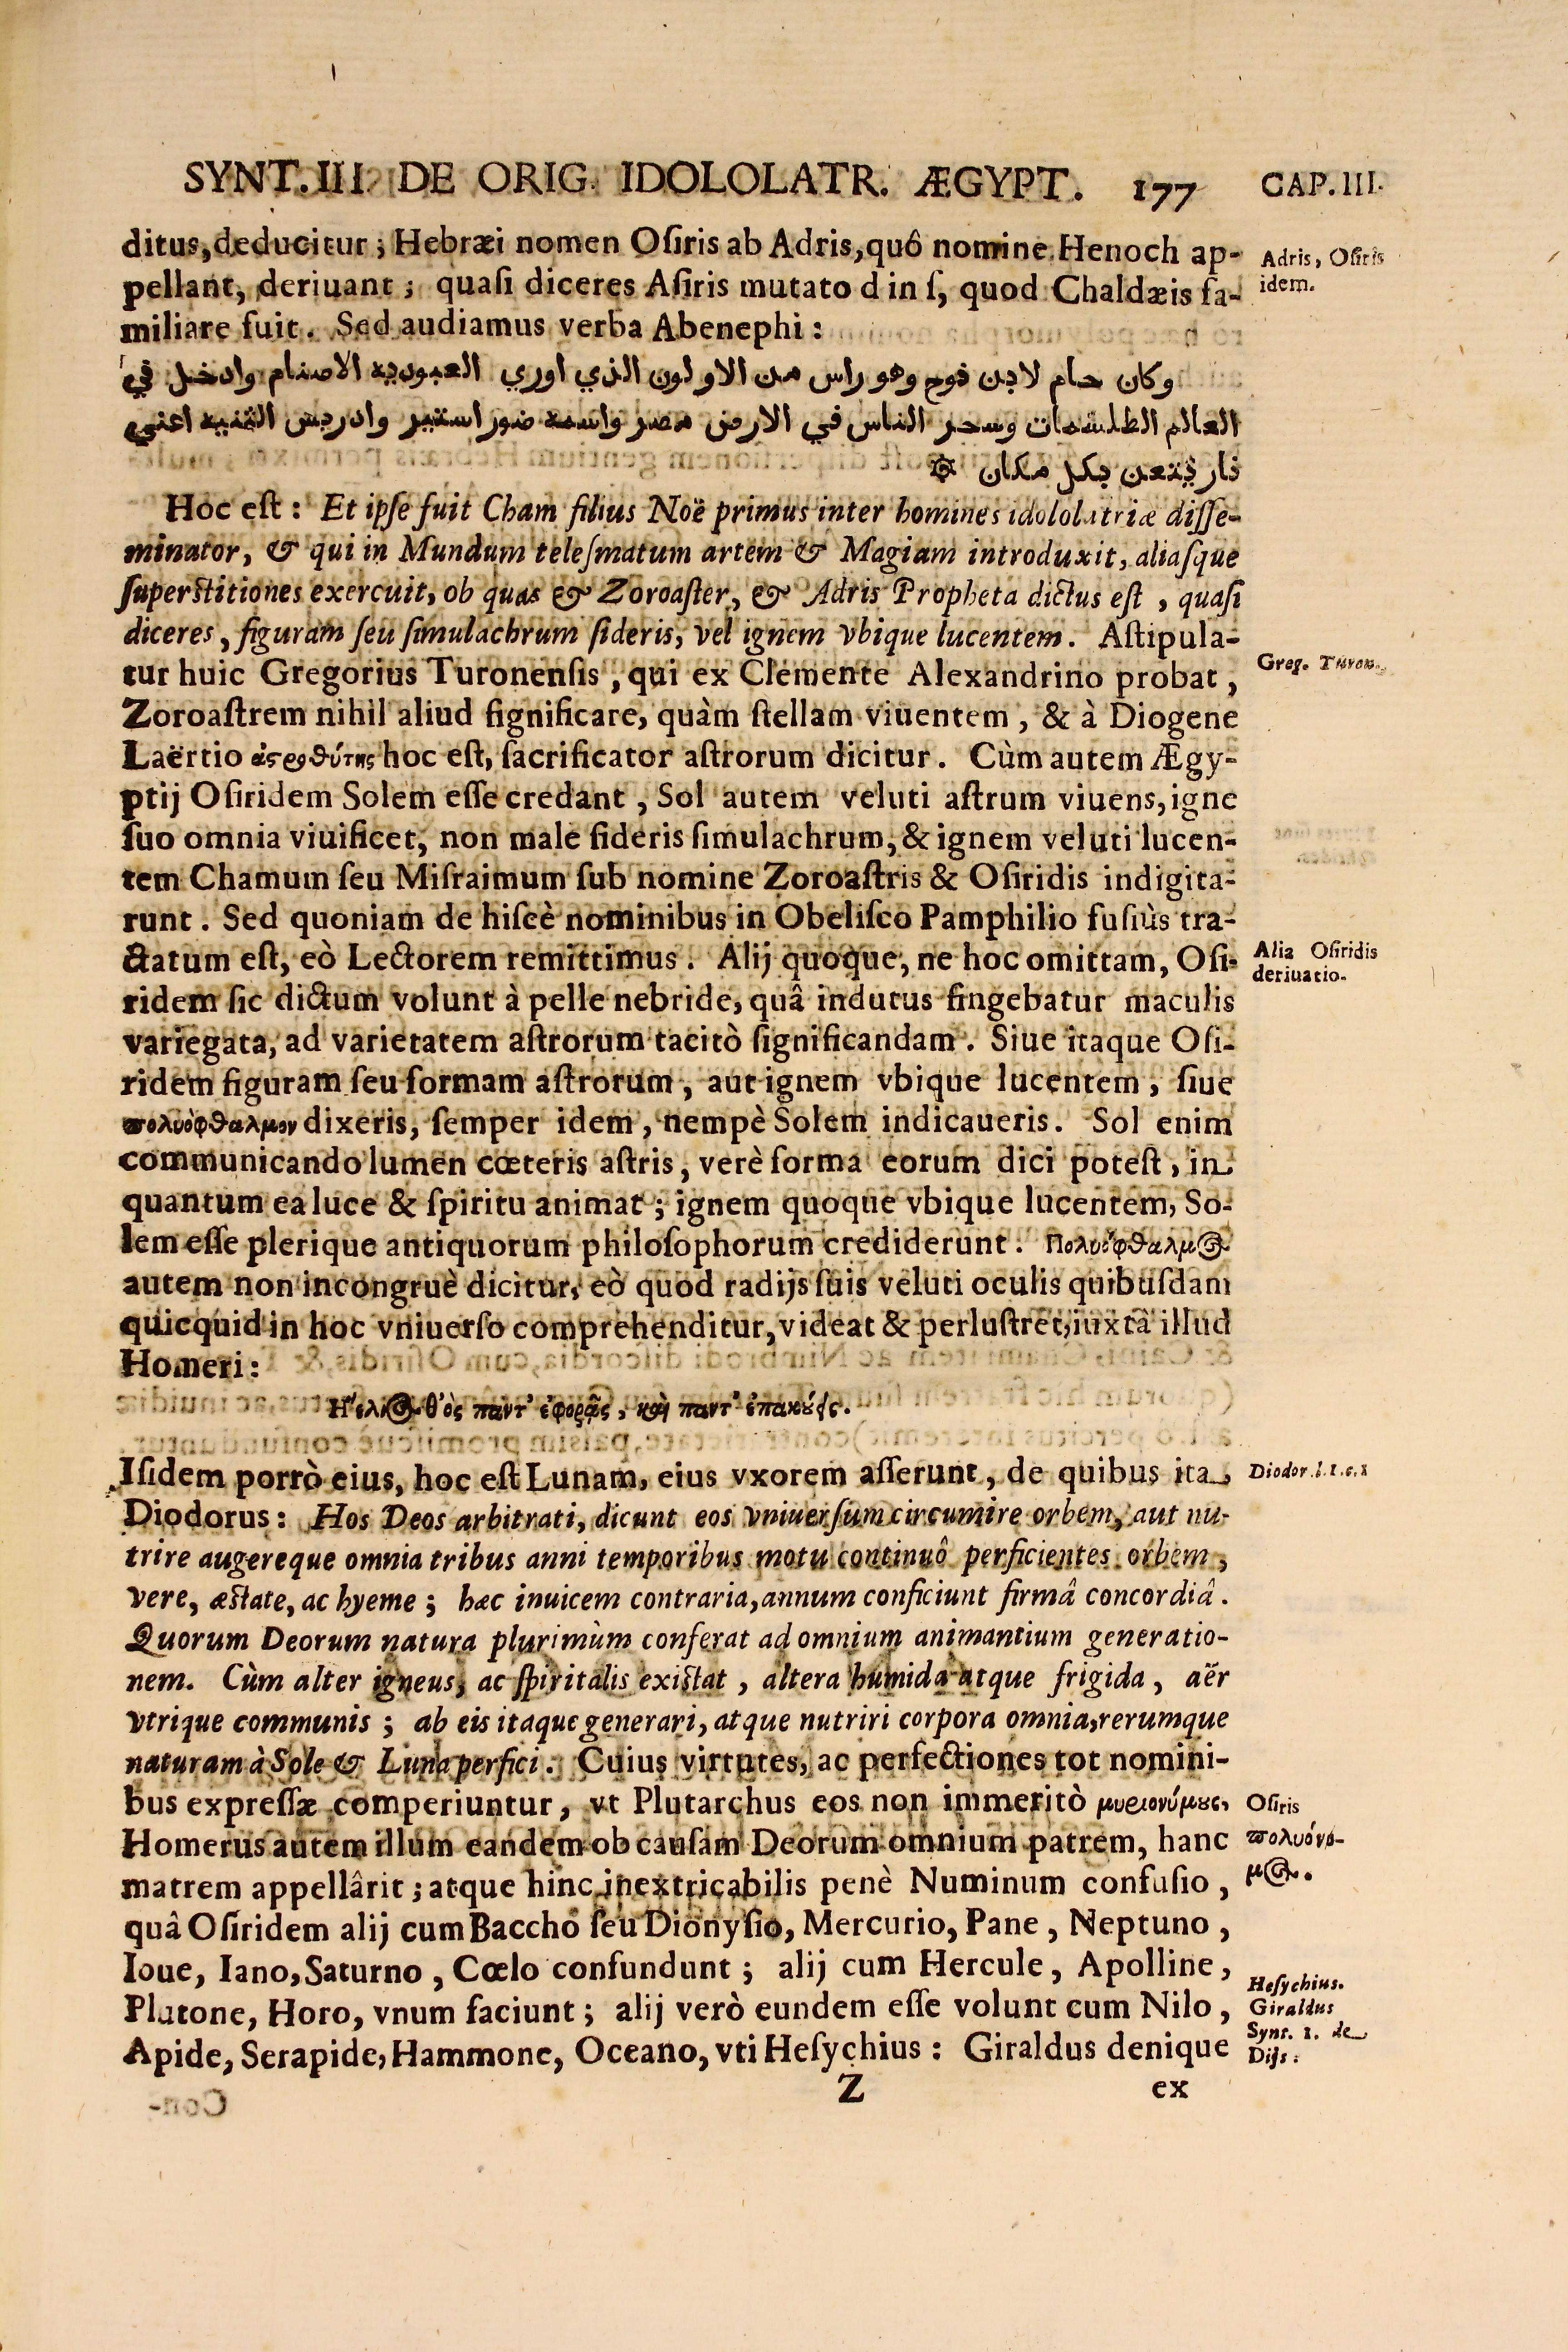 SYNT. III. DE ORIG. IDOLOLATR. ÆGYPT. 177 CAP. III.
ditus, deducitur; Hebræi nomen Oſiris ab Adris, quô nomine Henoch ap-
Adris, Oſiris
idem.
pellant, deriuant; quaſi diceres Aſiris mutato d in ſ, quod Chaldæis fa-
miliare fuit. Sed audiamus verba Abenephi:
وكان حام لابن نوح وهو راس من الاولون الذي اوري العبوديه الاصنام وادخل في
العالم الطلشمات وسحر الناس في الارض مصر واسمه ضوراستير وادريس
نار بكل مكان ۞
Hoc eſt: Et ipſe fuit Cham filius Noë primus inter homines idololatriæ diſſe-
minator, & qui in Mundum teleſmatum artem & Magiam introduxit, aliaſque
ſuperſtitiones exercuit, ob quas & Zoroaſter, & Adris Propheta dictus eſt, quaſi
diceres, figuram ſeu ſimulachrum ſideris, vel ignem vbique lucentem. Aſtipula-
tur huic Gregorius Turonenſis, qui ex Clemente Alexandrino probat,
Greg. Turon.
Zoroaſtrem nihil aliud ſignificare, quàm ſtellam viuentem, & à Diogene
Laërtio ἀςροθύτης hoc eſt, ſacrificator aſtrorum dicitur. Cùm autem Ægy-
ptij Oſiridem Solem eſſe credant, Sol autem veluti aſtrum viuens, igne
ſuo omnia viuificet, non male ſideris ſimulachrum, & ignem veluti lucen-
tem Chamum ſeu Miſraimum ſub nomine Zoroaſtris & Oſiridis indigita-
runt. Sed quoniam de hiſcè nominibus in Obeliſco Pamphilio fuſiùs tra-
ctatum eſt, eò Lectorem remittimus. Alij quoque, ne hoc omittam, Oſi-
Alia Oſiridis
deriuatio.
ridem ſic dictum volunt à pelle nebride, quâ indutus fingebatur maculis
variegata, ad varietatem aſtrorum tacitò ſignificandam. Siue itaque Oſi-
ridem figuram ſeu formam aſtrorum, aut ignem vbique lucentem, ſiue
πολυόφθαλμον dixeris, ſemper idem, nempè Solem indicaueris. Sol enim
communicando lumen cœteris aſtris, verè forma eorum dici poteſt, in
quantum ea luce & ſpiritu animat; ignem quoque vbique lucentem, So-
lem eſſe plerique antiquorum philoſophorum crediderunt. Πολυόφθαλμος
autem non incongruè dicitur, eò quod radijs ſuis veluti oculis quibuſdam
quicquid in hoc vniuerſo comprehenditur, videat & perluſtret, iuxtà illud
Homeri:
Ἠέλιος θ᾽ὸς παντ᾽ ἐφορᾷς, καὶ παντ᾽ ἐπακούεις.
Iſidem porrò eius, hoc eſt Lunam, eius vxorem aſſerunt, de quibus ita
Diodor. l. 1. c. 1
Diodorus: Hos Deos arbitrati, dicunt eos vniuerſum circumire orbem, aut nu-
trire augereque omnia tribus anni temporibus motu continuô perficientes orbem,
vere, æſtate, ac hyeme; hæc inuicem contraria, annum conficiunt firmâ concordiâ.
Quorum Deorum natura plurimùm conferat ad omnium animantium generatio-
nem. Cùm alter igneus, ac ſpiritalis exiſtat, altera humida atque frigida, aër
vtrique communis; ab eis itaque generari, atque nutriri corpora omnia, rerumque
naturam à Sole & Luna perfici. Cuius virtutes, ac perfectiones tot nomini-
bus expreſſæ comperiuntur, vt Plutarchus eos non immeritò μυριονύμους,
Oſiris
πολυόνυ-
μος.
Homerus autem illum eandem ob cauſam Deorum omnium patrem, hanc
matrem appellârit; atque hinc inextricabilis penè Numinum confuſio,
quâ Oſiridem alij cum Baccho ſeu Dionyſio, Mercurio, Pane, Neptuno,
Ioue, Iano, Saturno, Cœlo confundunt; alij cum Hercule, Apolline,
Plutone, Horo, vnum faciunt; alij verò eundem eſſe volunt cum Nilo,
Heſychius.
Giraldus
Synt. 1. de
Dijs.
Apide, Serapide, Hammone, Oceano, vti Heſychius: Giraldus denique
Z ex